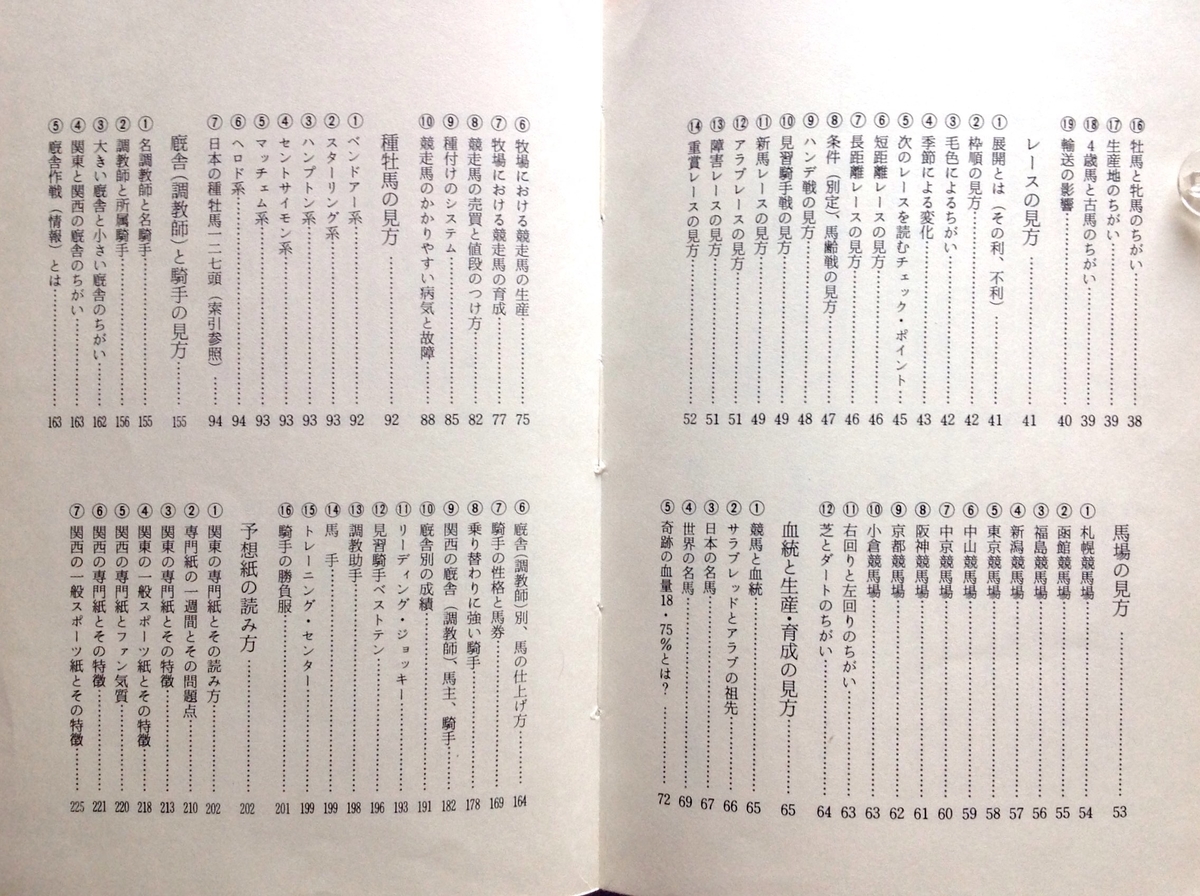 ⑯牡馬と牝馬のちがい……38
⑰生産地のちがい……39
⑱4歳馬と古馬のちがい……39
⑲輸送の影響……40
レースの見方……41
①展開とは（その利、不利）……41
②枠順の見方……42
③毛色によるちがい……42
④季節による変化……43
⑤次のレースを読むチェック・ポイント……45
⑥短距離レースの見方……46
⑦長距離レースの見方……46
⑧条件（別定）、馬齢戦の見方……47
⑨ハンデ戦の見方……48
⑩見習騎手戦の見方……49
⑪新馬レースの見方……49
⑫アラブレースの見方……51
⑬障害レースの見方……51
⑭重賞レースの見方……52
馬場の見方……53
①札幌競馬場……54
②函館競馬場……55
③福島競馬場……56
④新潟競馬場……57
⑤東京競馬場……58
⑥中山競馬場……59
⑦中京競馬場……60
⑧阪神競馬場……61
⑨京都競馬場……62
⑩小倉競馬場……63
⑪右回りと左回りのちがい……63
⑫芝とダートのちがい……64
血統と生産・育成の見方……65
①競馬と血統……65
②サラブレッドとアラブの祖先……66
③日本の名馬……67
④世界の名馬……69
⑤奇跡の血量18・75％とは？……72
⑥牧場における競走馬の生産……75
⑦牧場における競走馬の育成……77
⑧競走馬の売買と値段のつけ方……82
⑨種付けのシステム……85
⑩競走馬のかかりやすい病気と故障……88
種牡馬の見方……92
①ベンドアー系……92
②スターリング系……93
③ハンプトン系……93
④セントサイモン系……93
⑤マッチェム系……93
⑥ヘロド系……94
⑦日本の種牡馬一二七頭（索引参照）……94
厩舎（調教師）と騎手の見方……155
①名調教師と名騎手……155
②調教師と所属騎手……156
③大きい厩舎と小さい厩舎のちがい……162
④関東と関西の厩舎のちがい……163
⑤厩舎作戦（情報）とは……163
⑥厩舎（調教師）別、馬の仕上げ方……164
⑦騎手の性格と馬券……169
⑧乗り替わりに強い騎手……178
⑨関西の厩舎（調教師）、馬主、騎手……182
⑩厩舎別の成績……191
⑪リーディング・ジョッキー……193
⑫見習騎手ベストテン……196
⑬調教助手……198
⑭馬　手……199
⑮トレーニング・センター……199
⑯騎手の勝負服……201
予想紙の読み方……202
①関東の専門紙とその読み方……202
②専門紙の一週間とその問題点……210
③関東の専門紙とその特徴……213
④関東の一般スポーツ紙とその特徴……218
⑤関西の専門紙とファン気質……220
⑥関西の専門紙とその特徴……221
⑦関西の一般スポーツ紙とその特徴……225